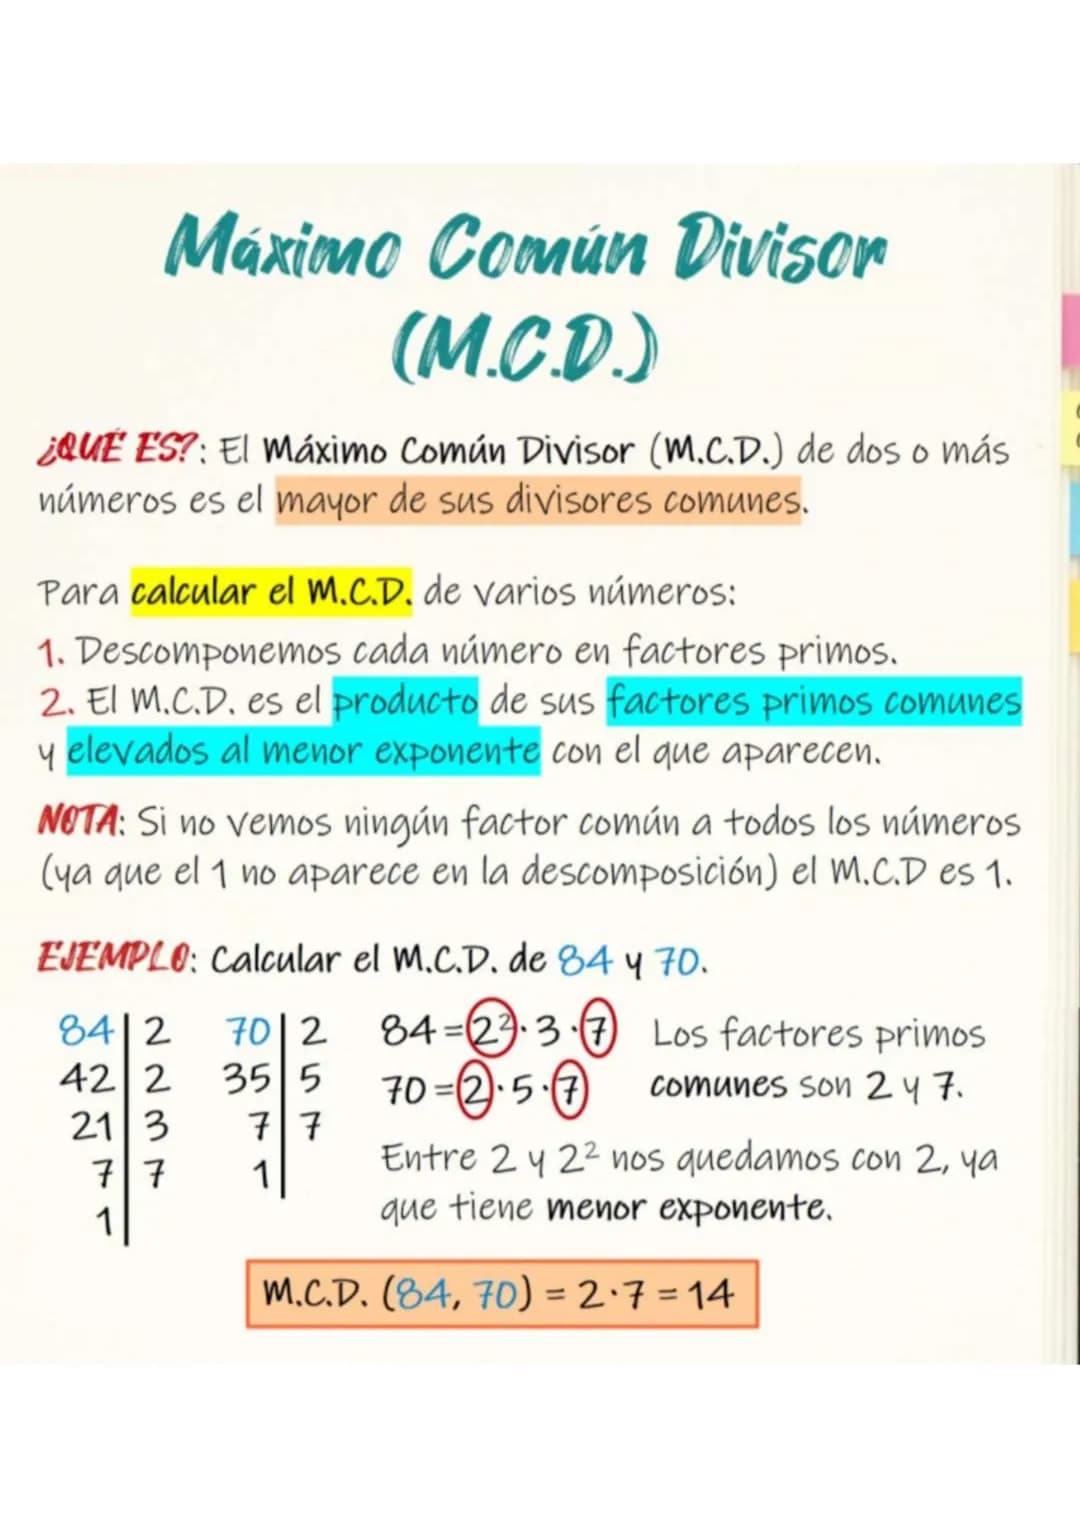 Máximo Común Divisor
(M.C.D.)
¿QUÉ ES?: El Máximo Común Divisor (M.C.D.) de dos o más
números es el mayor de sus divisores comunes.
Para calcular el M.C.D. de varios números:
1. Descomponemos cada número en factores primos.
2. El M.C.D. es el producto de sus factores primos comunes
y elevados al menor exponente con el que aparecen.
NOTA: Si no vemos ningún factor común a todos los números
(ya que el 1 no aparece en la descomposición) el M.C.D es 1.
EJEMPLO: Calcular el M.C.D. de 84 y 70.
84 | 2
42 | 2
21 | 3
7 | 7
1 |
70 | 2
35 | 5
7 | 7
1 |
84 = 2² · 3 · 7
70 = 2 · 5 · 7
Los factores primos
comunes son 2 y 7.
Entre 2 y 2² nos quedamos con 2, ya
que tiene menor exponente.
M.C.D. (84, 70) = 2 · 7 = 14